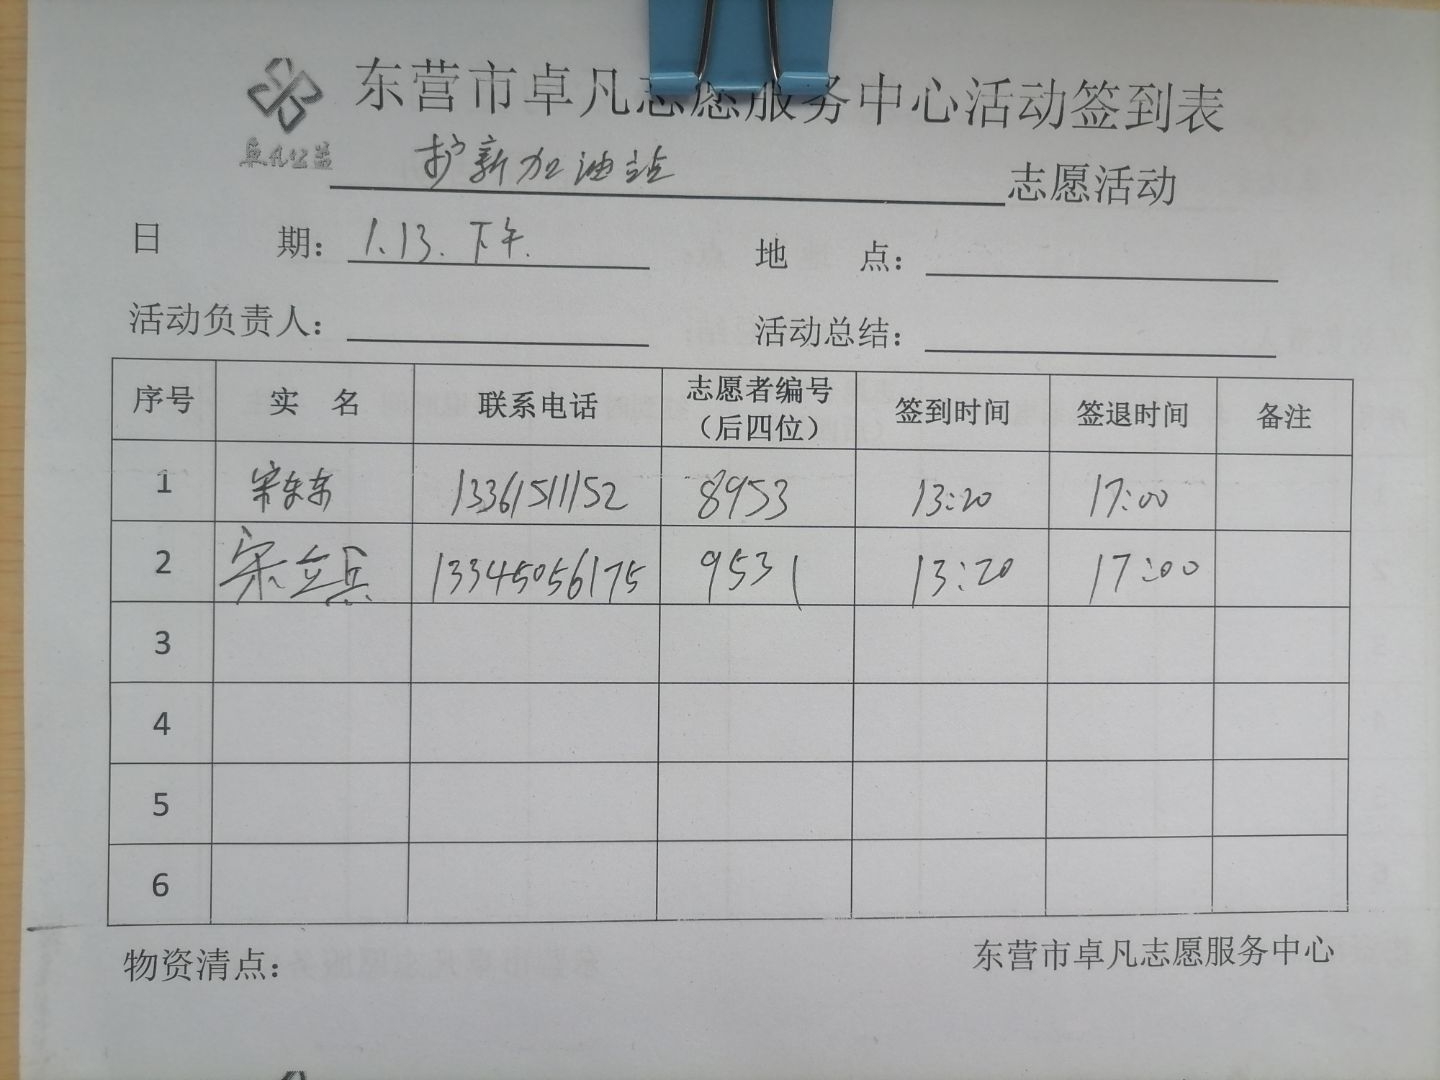 东营市卓凡志愿服务中心活动签到表
卓凡公益
护新加油站 志愿活动
日 期： 1.13.下午. 地 点：
活动负责人： 活动总结：
序号 实 名 联系电话 志愿者编号（后四位） 签到时间 签退时间 备注
1 宋东东 13361511152 8953 13:20 17:00
2 宋立兵 13345056175 9531 13:20 17:00
3
4
5
6
物资清点： 东营市卓凡志愿服务中心